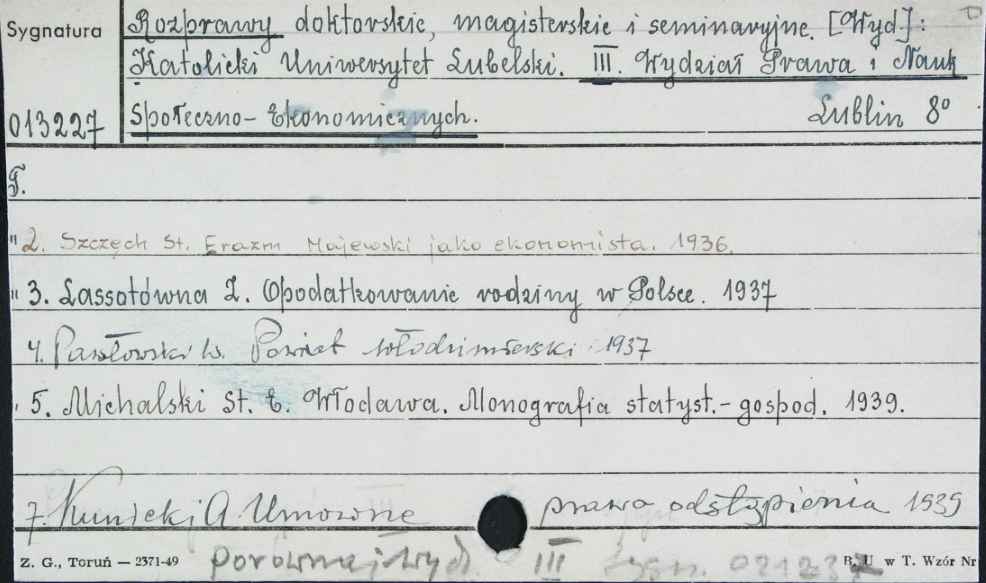 Sygnatura
013227
Rozprawy doktorskie, magisterskie i seminaryjne. [Wyd]:
Katolicki Uniwersytet Lubelski. III. Wydział Prawa i Nauk
Społeczno-Ekonomicznych. Lublin 8°
T.
" 2. Szczęch St. Erazm Majewski jako ekonomista. 1936.
" 3. Lassotówna Z. Opodatkowanie rodziny w Polsce. 1937
4. Pawłowski W. Powiat włodzimierski 1937
" 5. Michalski St. E. Włodawa. Monografia statyst.-gospod. 1939.
7. Kunicki A Umowne prawo odstąpienia 1939
porównaj wyd. III sygn.
Z. G., Toruń — 2371-49
B. U w T. Wzór Nr